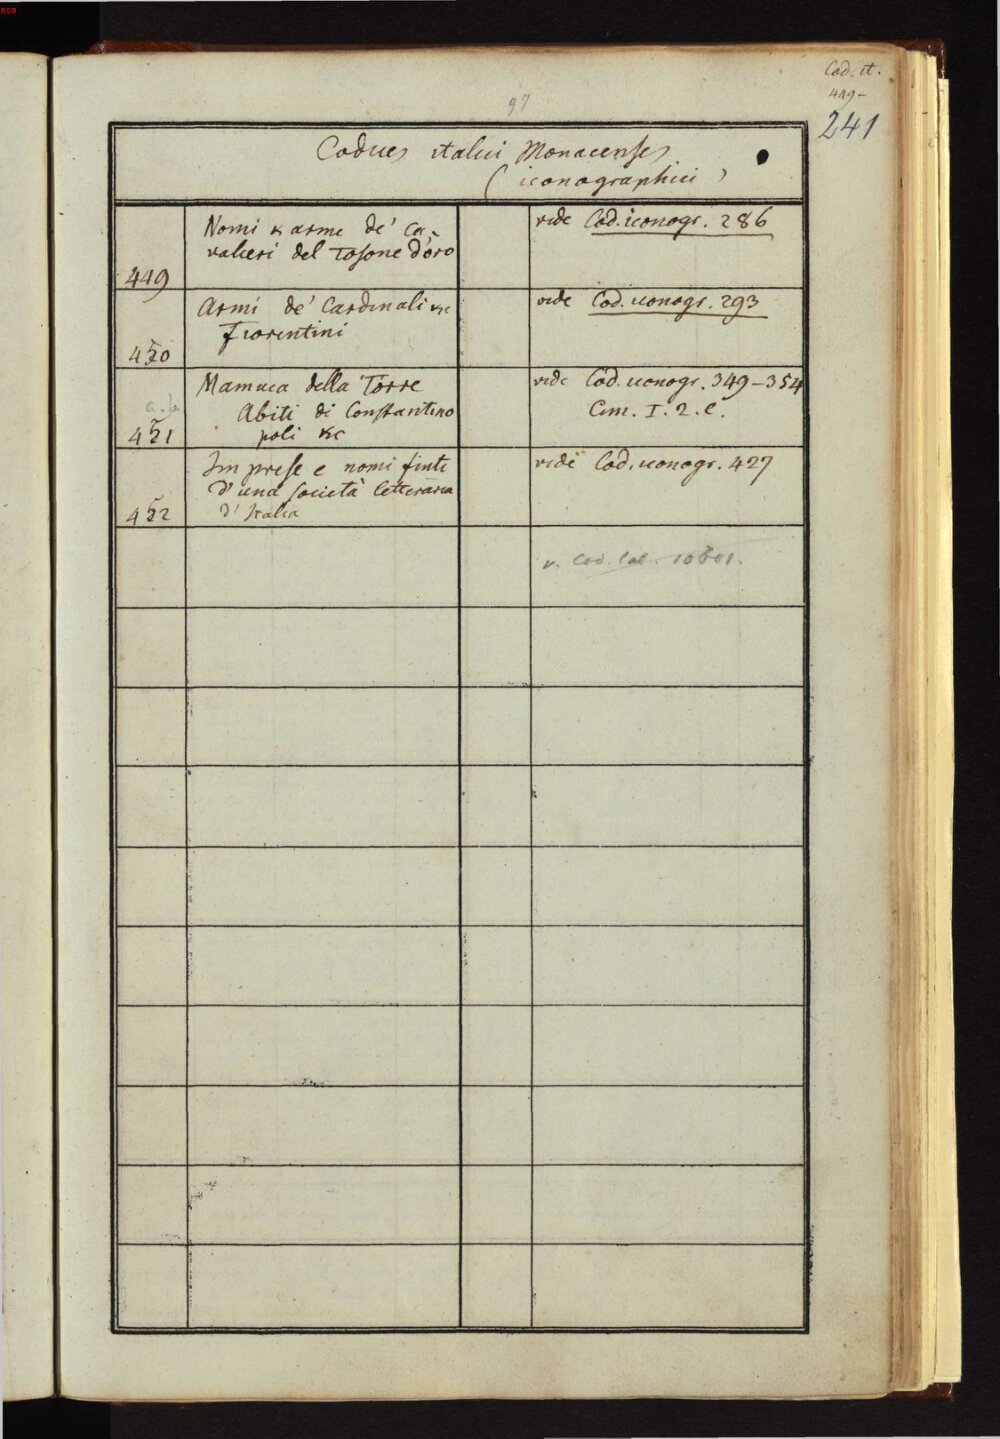 BSB
Cod. it.
449-
241
97
Codices italici Monacenses
(iconographici)
449
Nomi & arme de' Ca-
valieri del Tosone d'oro
vide Cod. iconogr. 286
450
Armi de' Cardinali &c
Fiorentini
vide Cod. iconogr. 293
a.b.
451
Mamuca della Torre
Abiti di Constantino
poli &c
vide Cod. iconogr. 349-354
Cim. I. 2. e.
452
Imprese e nomi finti
d'una società letteraria
d'Italia
vide Cod. iconogr. 427
v. Cod. lat. 10601.